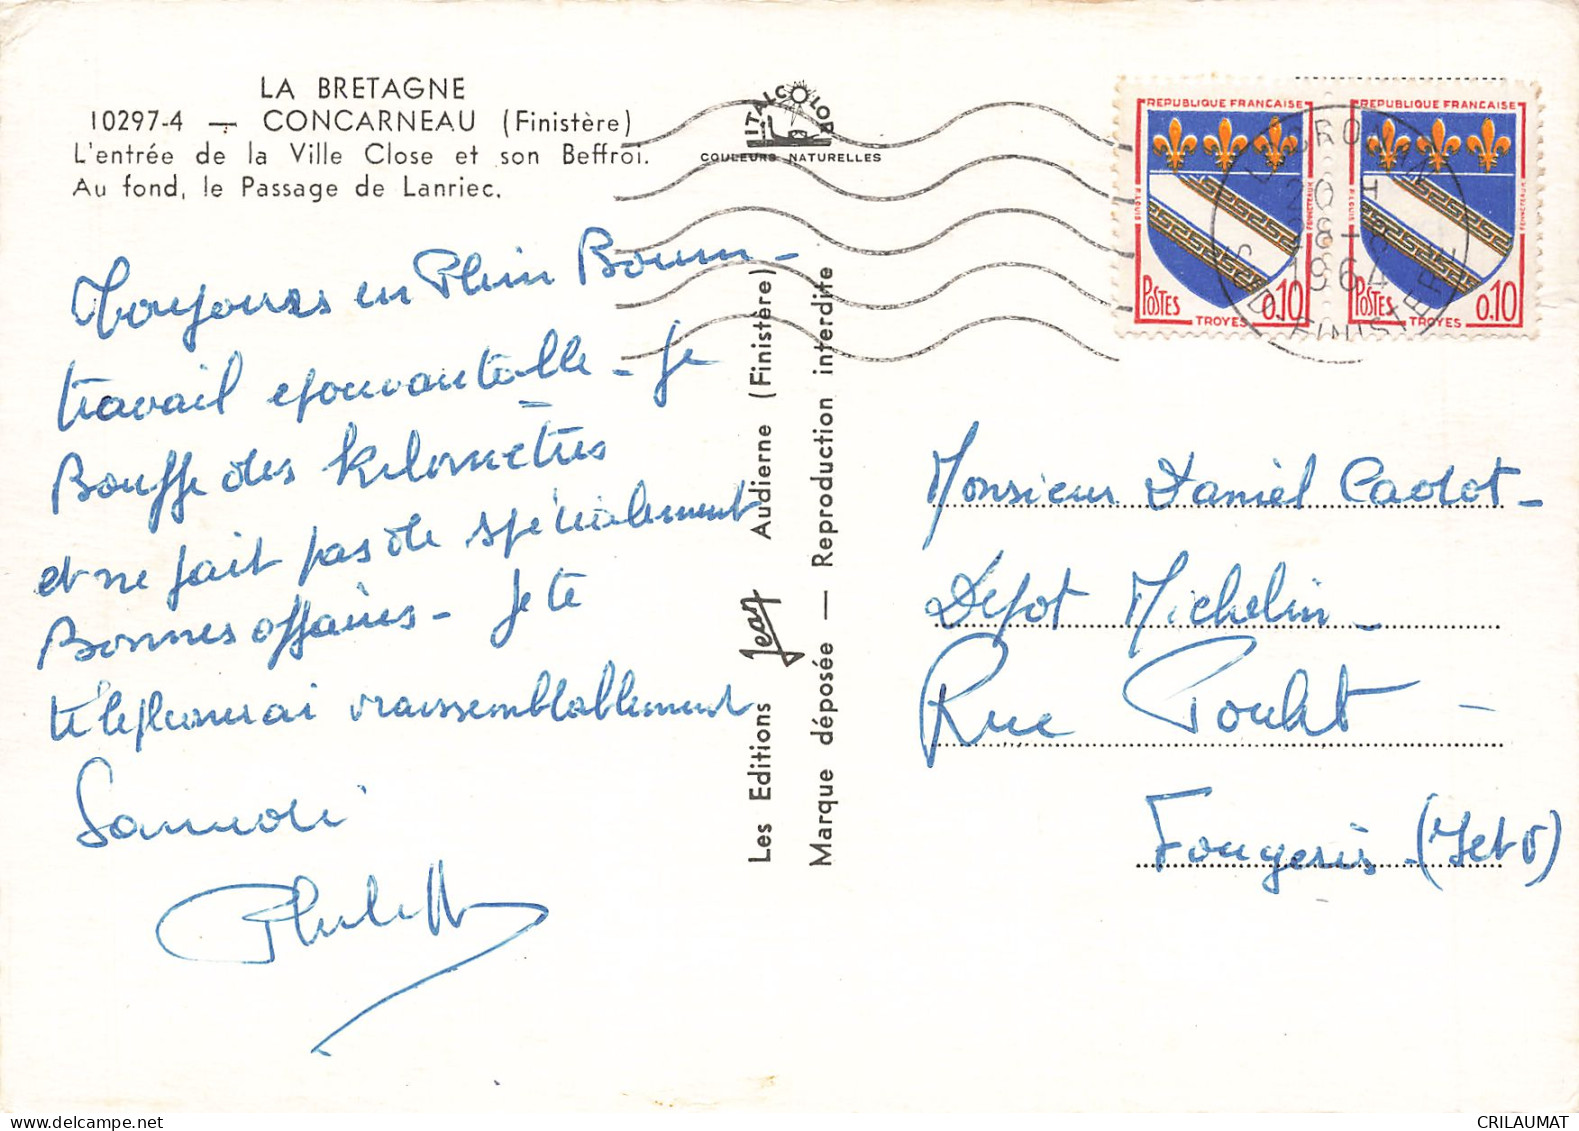 LA BRETAGNE
10297-4 — CONCARNEAU (Finistère)
L'entrée de la Ville Close et son Beffroi.
Au fond, le Passage de Lanriec.
ITALCOLOR
COULEURS NATURELLES
REPUBLIQUE FRANCAISE
POSTES
0,10
TROYES
REPUBLIQUE FRANCAISE
POSTES
0,10
TROYES
20 H
1964
FINISTERE
Toujours en Plein Boum –
travail epouvantable – je
Bouffe des kilomètres
et ne fait pas de spécialement
Bonnes affaires – Je te
téléphonerai vraissemblablement
Samedi
Les Editions Jean Audierne (Finistère)
Marque déposée — Reproduction interdite
Monsieur Daniel Cadot –
Depot Michelin –
Rue –
Fougeres (I et V)
CRILAUMAT